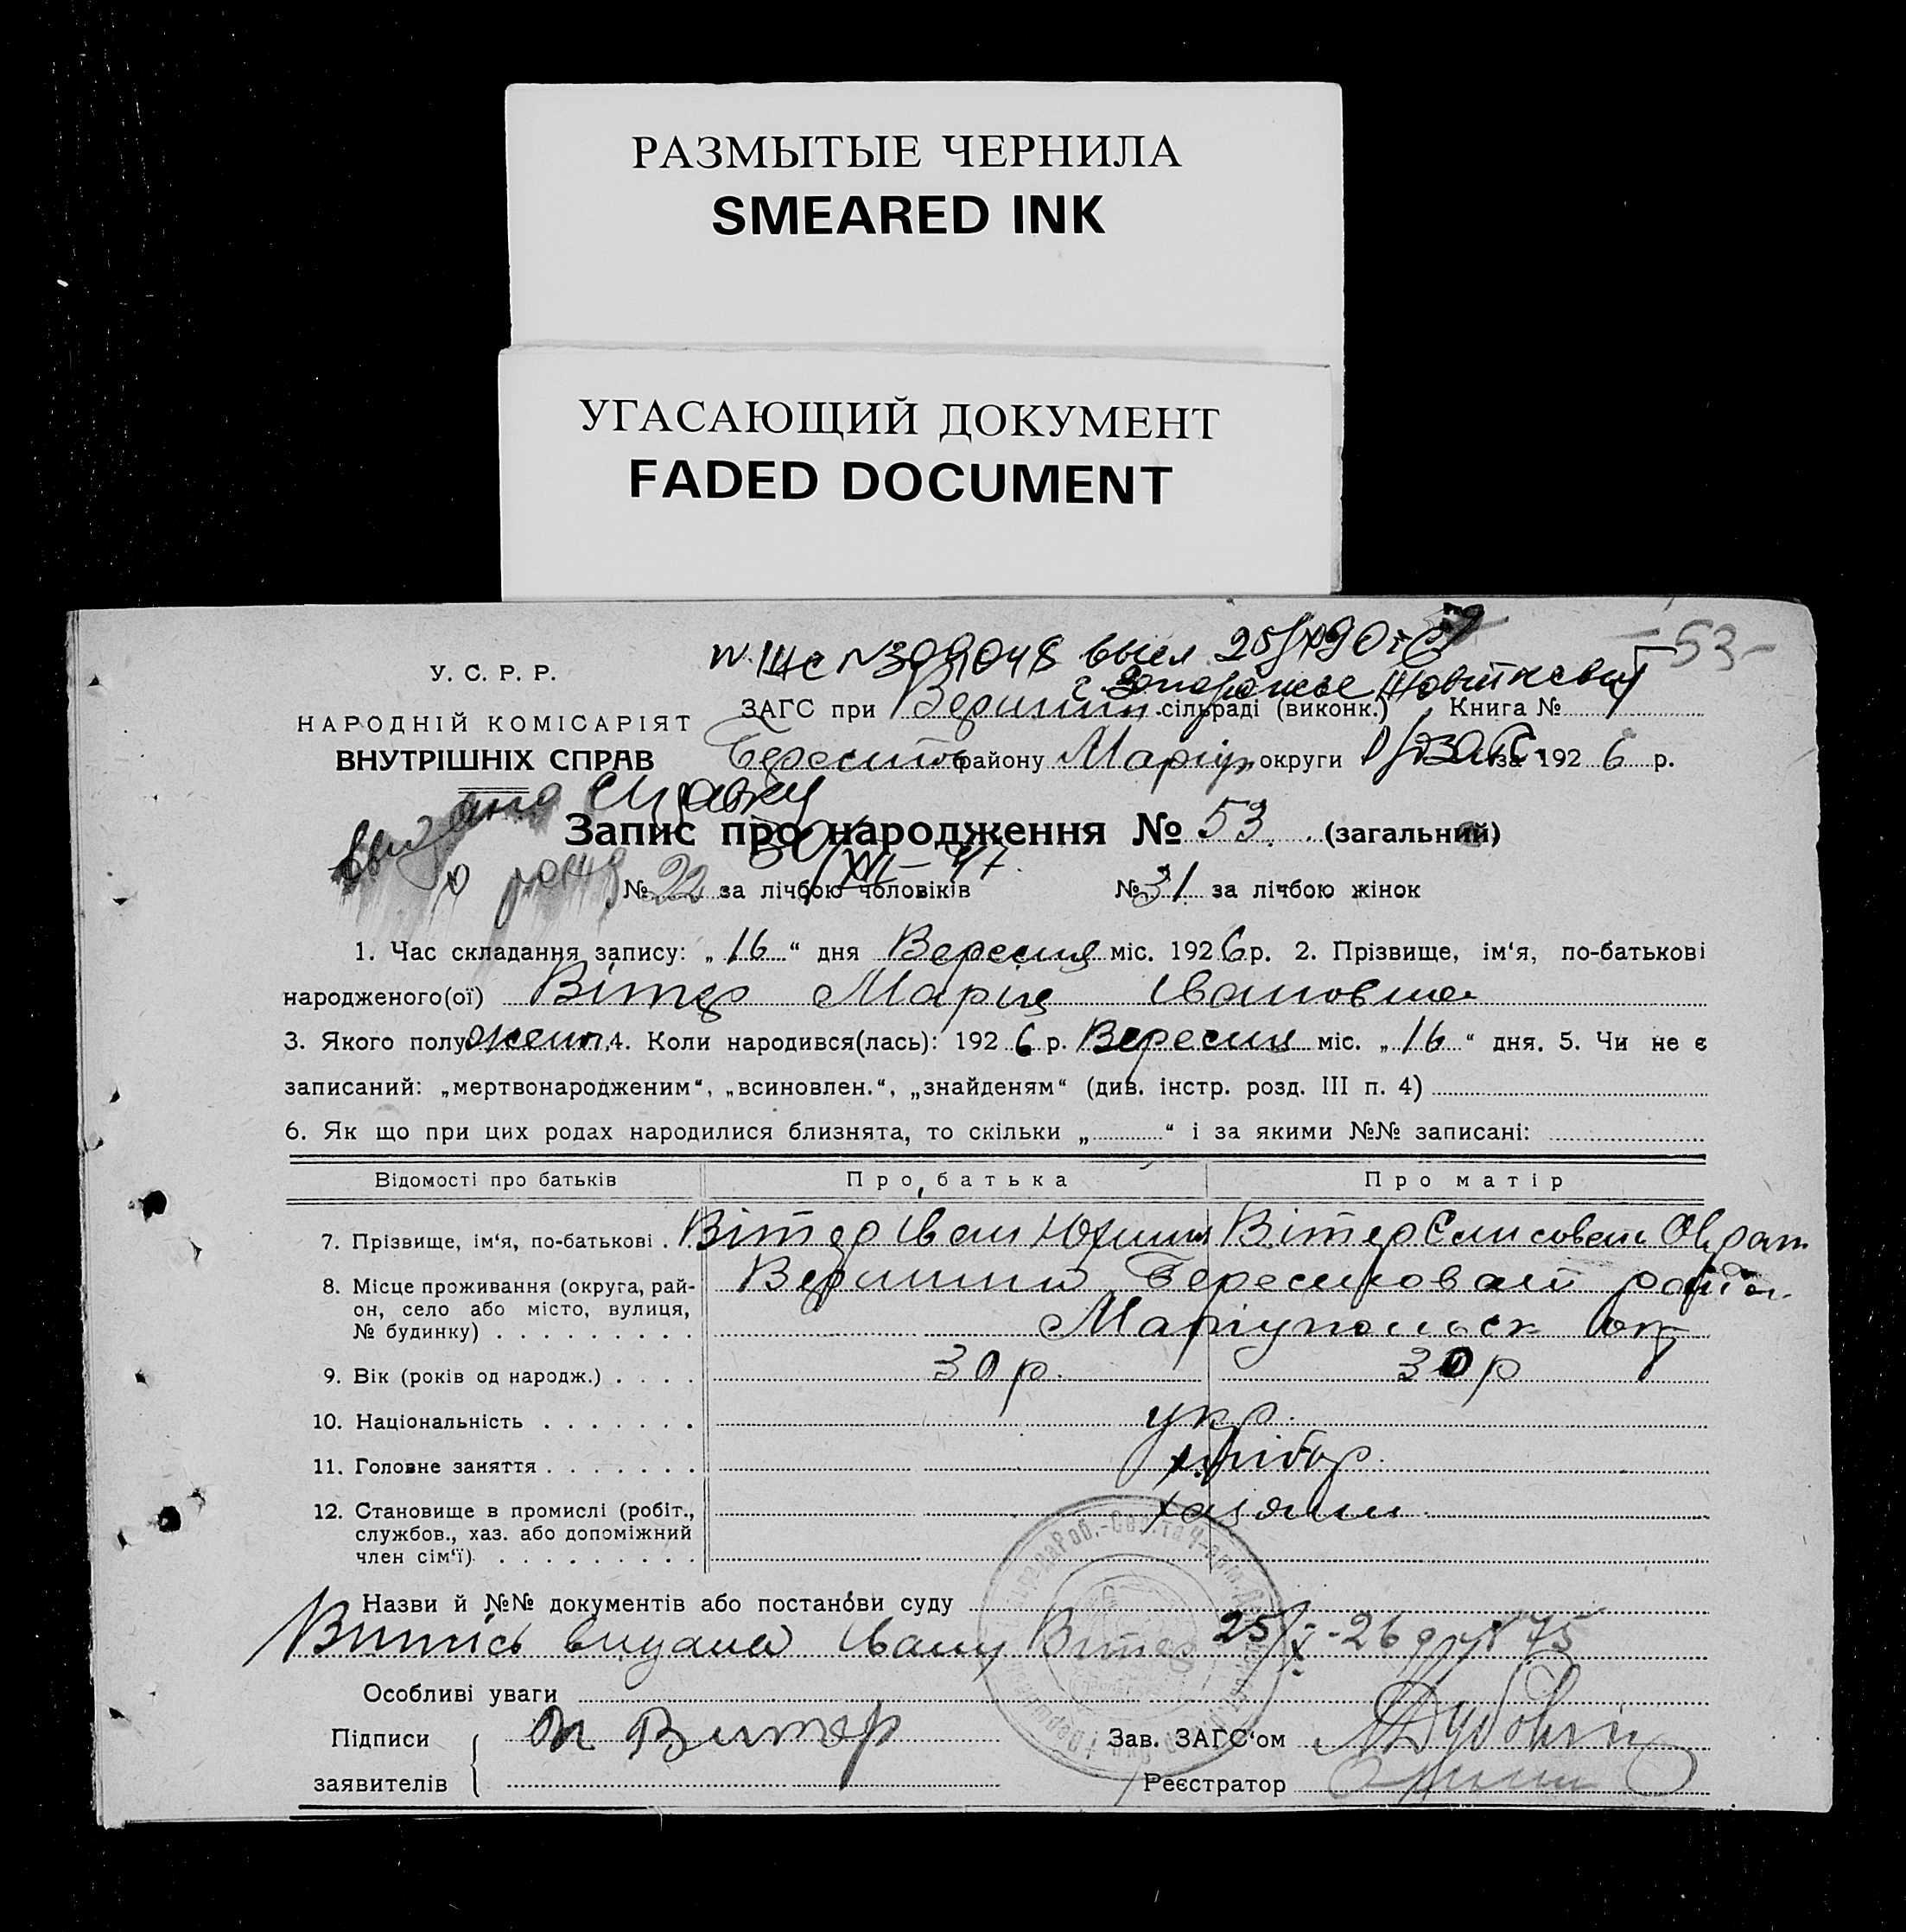 РАЗМЫТЫЕ ЧЕРНИЛА
SMEARED INK
УГАСАЮЩИЙ ДОКУМЕНТ
FADED DOCUMENT
-53-
У. С. Р. Р.
НАРОДНІЙ КОМІСАРІЯТ
ВНУТРІШНІХ СПРАВ
ЗАГС при Вершин сільраді (виконк.) Книга №
Берестов району Маріуп округи за 1926 р.
видано справку
о рожд 30/XII-47.
Запис про народження № 53 (загальний)
№ 22 за лічбою чоловіків № 31 за лічбою жінок
1. Час складання запису: „16“ дня Вересня міс. 1926 р. 2. Прізвище, ім‘я, по-батькові
народженого(ої) Вітер Марія Івановна
3. Якого полу жено. 4. Коли народився(лась): 1926 р. Вересня міс. „16“ дня. 5. Чи не є
записаний: „мертвонародженим“, „всиновлен.“, „знайденям“ (див. інстр. розд. III п. 4)
6. Як що при цих родах народилися близнята, то скільки „ “ і за якими №№ записані:
Відомості про батьків Про батька Про матір
7. Прізвище, ім‘я, по-батькові . Вітер Іван Вітер Єлисовета
8. Місце проживання (округа, рай-
он, село або місто, вулиця,
№ будинку) . . . . . . . . . Маріупольск окр
9. Вік (років од народж.) . . . . 30 р. 30 р
10. Національність . . . . . . . укр.
11. Головне заняття . . . . . . . хлібор.
12. Становище в промислі (робіт.,
службов., хаз. або допоміжний
член сім‘ї) . . . . . . . . . хазяин
Назви й №№ документів або постанови суду
Випись видана Івану Вітер 25/X-26 75
Особливі уваги
Підписи Витер Зав. ЗАГС‘ом
заявителів Реєстратор